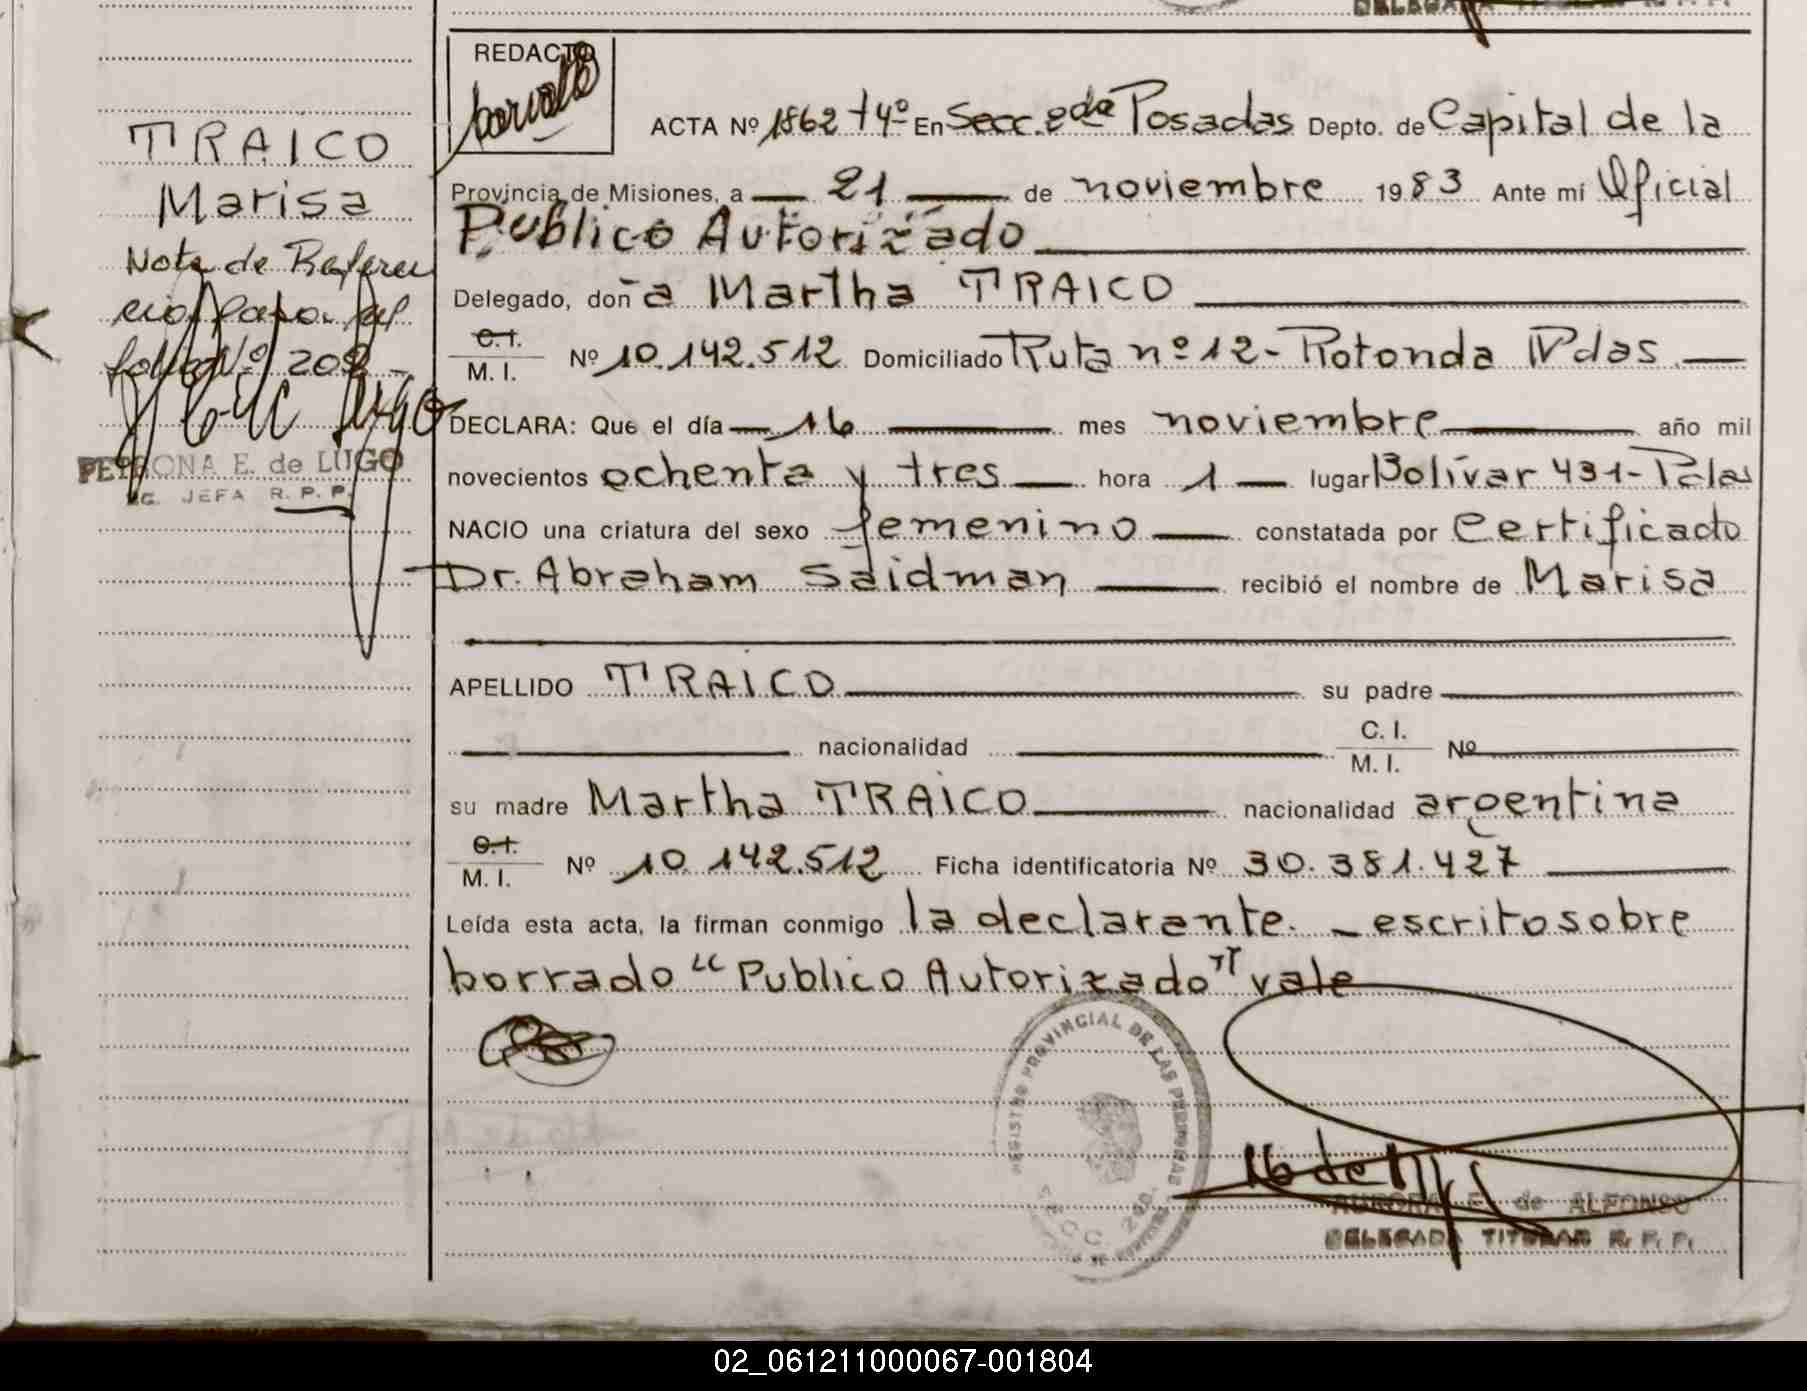 DELEGADA TITULAR R. P. P.
REDACTO
ACTA Nº 1862 t4º En Secc. 2da Posadas Depto. de Capital de la
Provincia de Misiones, a — 21 — de noviembre 1983 Ante mí Oficial
Publico Autorizado
Delegado, doña Martha TRAICO
C.I.
M. I. Nº 10.142.512 Domiciliado Ruta nº 12 - Rotonda Pdas.
DECLARA: Que el día — 16 — mes noviembre — año mil
novecientos ochenta y tres — hora 1 — lugar Bolívar 431 - Pdas
NACIO una criatura del sexo femenino — constatada por Certificado
Dr. Abraham Saidman — recibió el nombre de Marisa
APELLIDO TRAICO — su padre —
— nacionalidad — C. I.
M. I. Nº —
su madre Martha TRAICO — nacionalidad argentina
C.I.
M. I. Nº 10.142.512 Ficha identificatoria Nº 30.381.427 —
Leída esta acta, la firman conmigo la declarante. — escrito sobre
borrado "Publico Autorizado" vale
REGISTRO PROVINCIAL DE LAS PERSONAS
SECC. 2da.
AURORA E. de ALFONSO
DELEGADA TITULAR R. P. P.
TRAICO
Marisa
Nota de Referen
cia
folio Nº 208
PETRONA E. de LUGO
JEFA R. P. P.
02_061211000067-001804